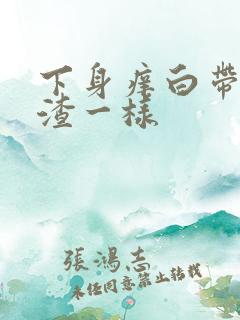 下身痒白带
渣一樣
張鴻志
未经同意禁止转载